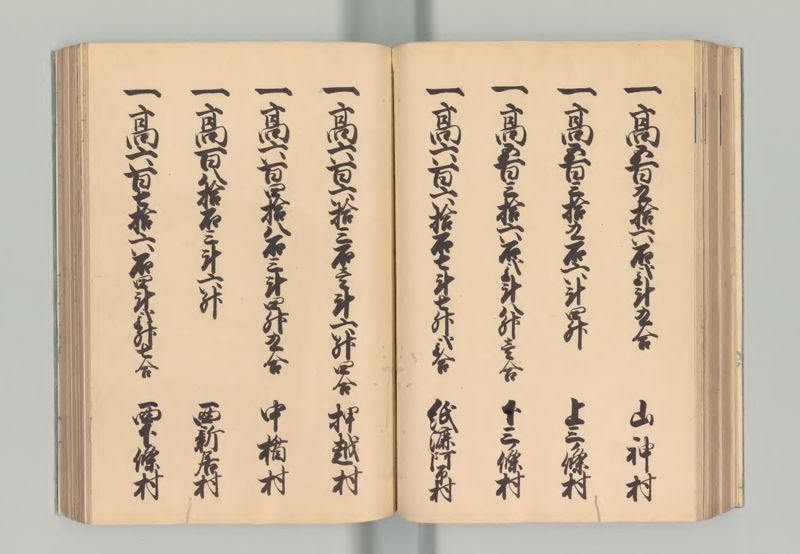 一高五百九拾六石弐斗五合 山神村
一高五百三拾五石六斗四升 上三條村
一高五百三拾六石弐斗八升壱合 下三條村
一高六百六拾石七斗七升弐合 紙漉河原村
一高六百六拾三石壱斗六升四合 押越村
一高六百四拾八石三斗四升五合 中楯村
一高百八拾石三斗六升 西新居村
一高六百七拾六石四斗弐升七合 西下條村